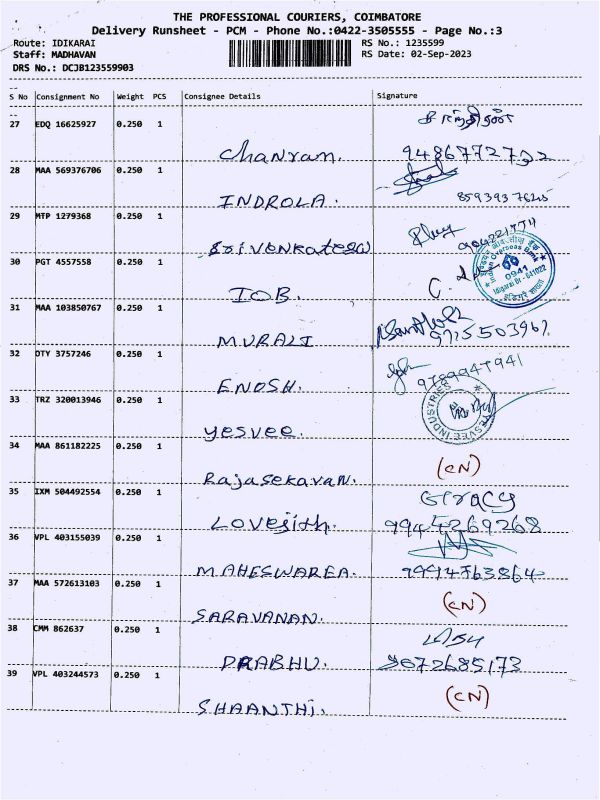 THE PROFESSIONAL COURIERS, COIMBATORE
Delivery Runsheet - PCM - Phone No.:0422-3505555 - Page No.:3
Route: IDIKARAI RS No.: 1235599
Staff: MADHAVAN RS Date: 02-Sep-2023
DRS No.: DCJB123559903
S No Consignment No Weight PCS Consignee Details Signature
27 EDQ 16625927 0.250 1
Chanram. 9486772722
28 MAA 569376706 0.250 1
INDROLA.
29 MTP 1279368 0.250 1
Srivenkatesw
30 PGT 4557558 0.250 1
IOB.
Indian Overseas Bank
0941
31 MAA 103850767 0.250 1
MURALI
32 OTY 3757246 0.250 1
ENOSH. 9789947941
33 TRZ 320013946 0.250 1
yesvee.
YESVEE INDUSTRIES
34 MAA 861182225 0.250 1 (CN)
Rajasekavan.
35 IXM 504492554 0.250 1 Gracy
Lovejith. 9944269268
36 VPL 403155039 0.250 1
MAHESWAREA. 9994763864
37 MAA 572613103 0.250 1 (CN)
SARAVANAN.
38 CMM 862637 0.250 1
PRABHU. 9072685173
39 VPL 403244573 0.250 1 (CN)
SHAANTHI.